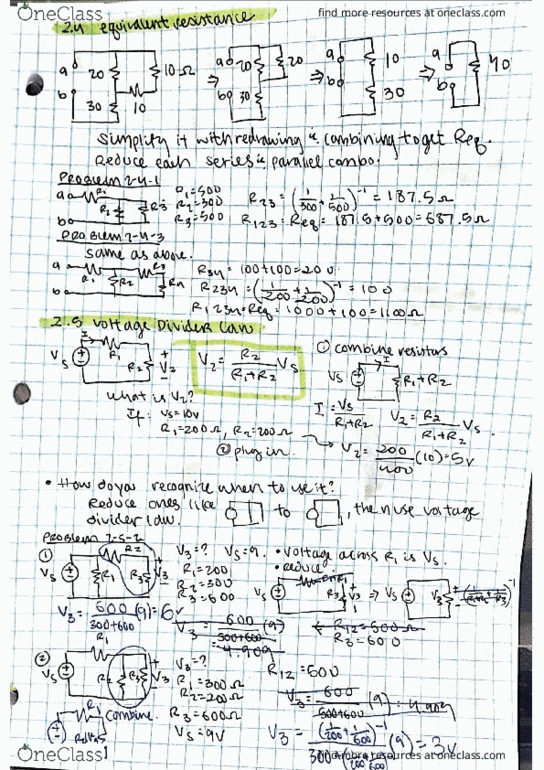 OneClass
find more resources at oneclass.com
2.4 equivalent resistance
a 20 10Ω b 30 10
⇒ a 20 20 b 30
⇒ a b 10 30
⇒ a b 40
Simplify it with redrawing & combining to get Req.
Reduce each series & parallel combo.
Problem 2-4-1
a R1 R2 R3 b
R1=500
R2=300
R3=500
R23 = (1/300 + 1/500)^-1 = 187.5Ω
R123 = Req = 187.5+500 = 687.5Ω
Problem 2-4-3
same as above.
a R1 R2 R3 R4 b
R34 = 100+100=200
R234 = (1/200 + 1/200)^-1 = 100
R1234=Req = 1000+100=1100Ω
2.5 Voltage Divider Law
Vs I R1 R2 + V2 -
V2 = R2/(R1+R2) Vs
① combine resistors
Vs R1+R2
what is V2?
If: Vs=10V
R1=200Ω, R2=200Ω
I = Vs/(R1+R2)
V2 = R2/(R1+R2) Vs
② plug in
V2 = 200/400 (10)=5V
• How do you recognize when to use it?
Reduce ones like to , then use voltage
divider law.
Problem 2-5-2
① Vs R1 R2 R3 V3
V3=? Vs=9.
R1=200
R2=300
R3=600
• Voltage across R1 is Vs.
• reduce
Vs R3 V3 ⇒ Vs V3
V3 = 600/(300+600) (9)=6V
V3 = 600/(500+600) (9)
= 4.909
R12=500Ω
R3=600
② Vs R1 R2 R3 V3
V3=?
R1=300Ω
R2=200Ω
R3=600Ω
Vs=9V
R12=500
V3= 600/(500+600) (9)=4.909
combine.
V3 = (1/200 + 1/600)^-1 / 300+(1/200 1/600) (9) = 3V
OneClass
find more resources at oneclass.com